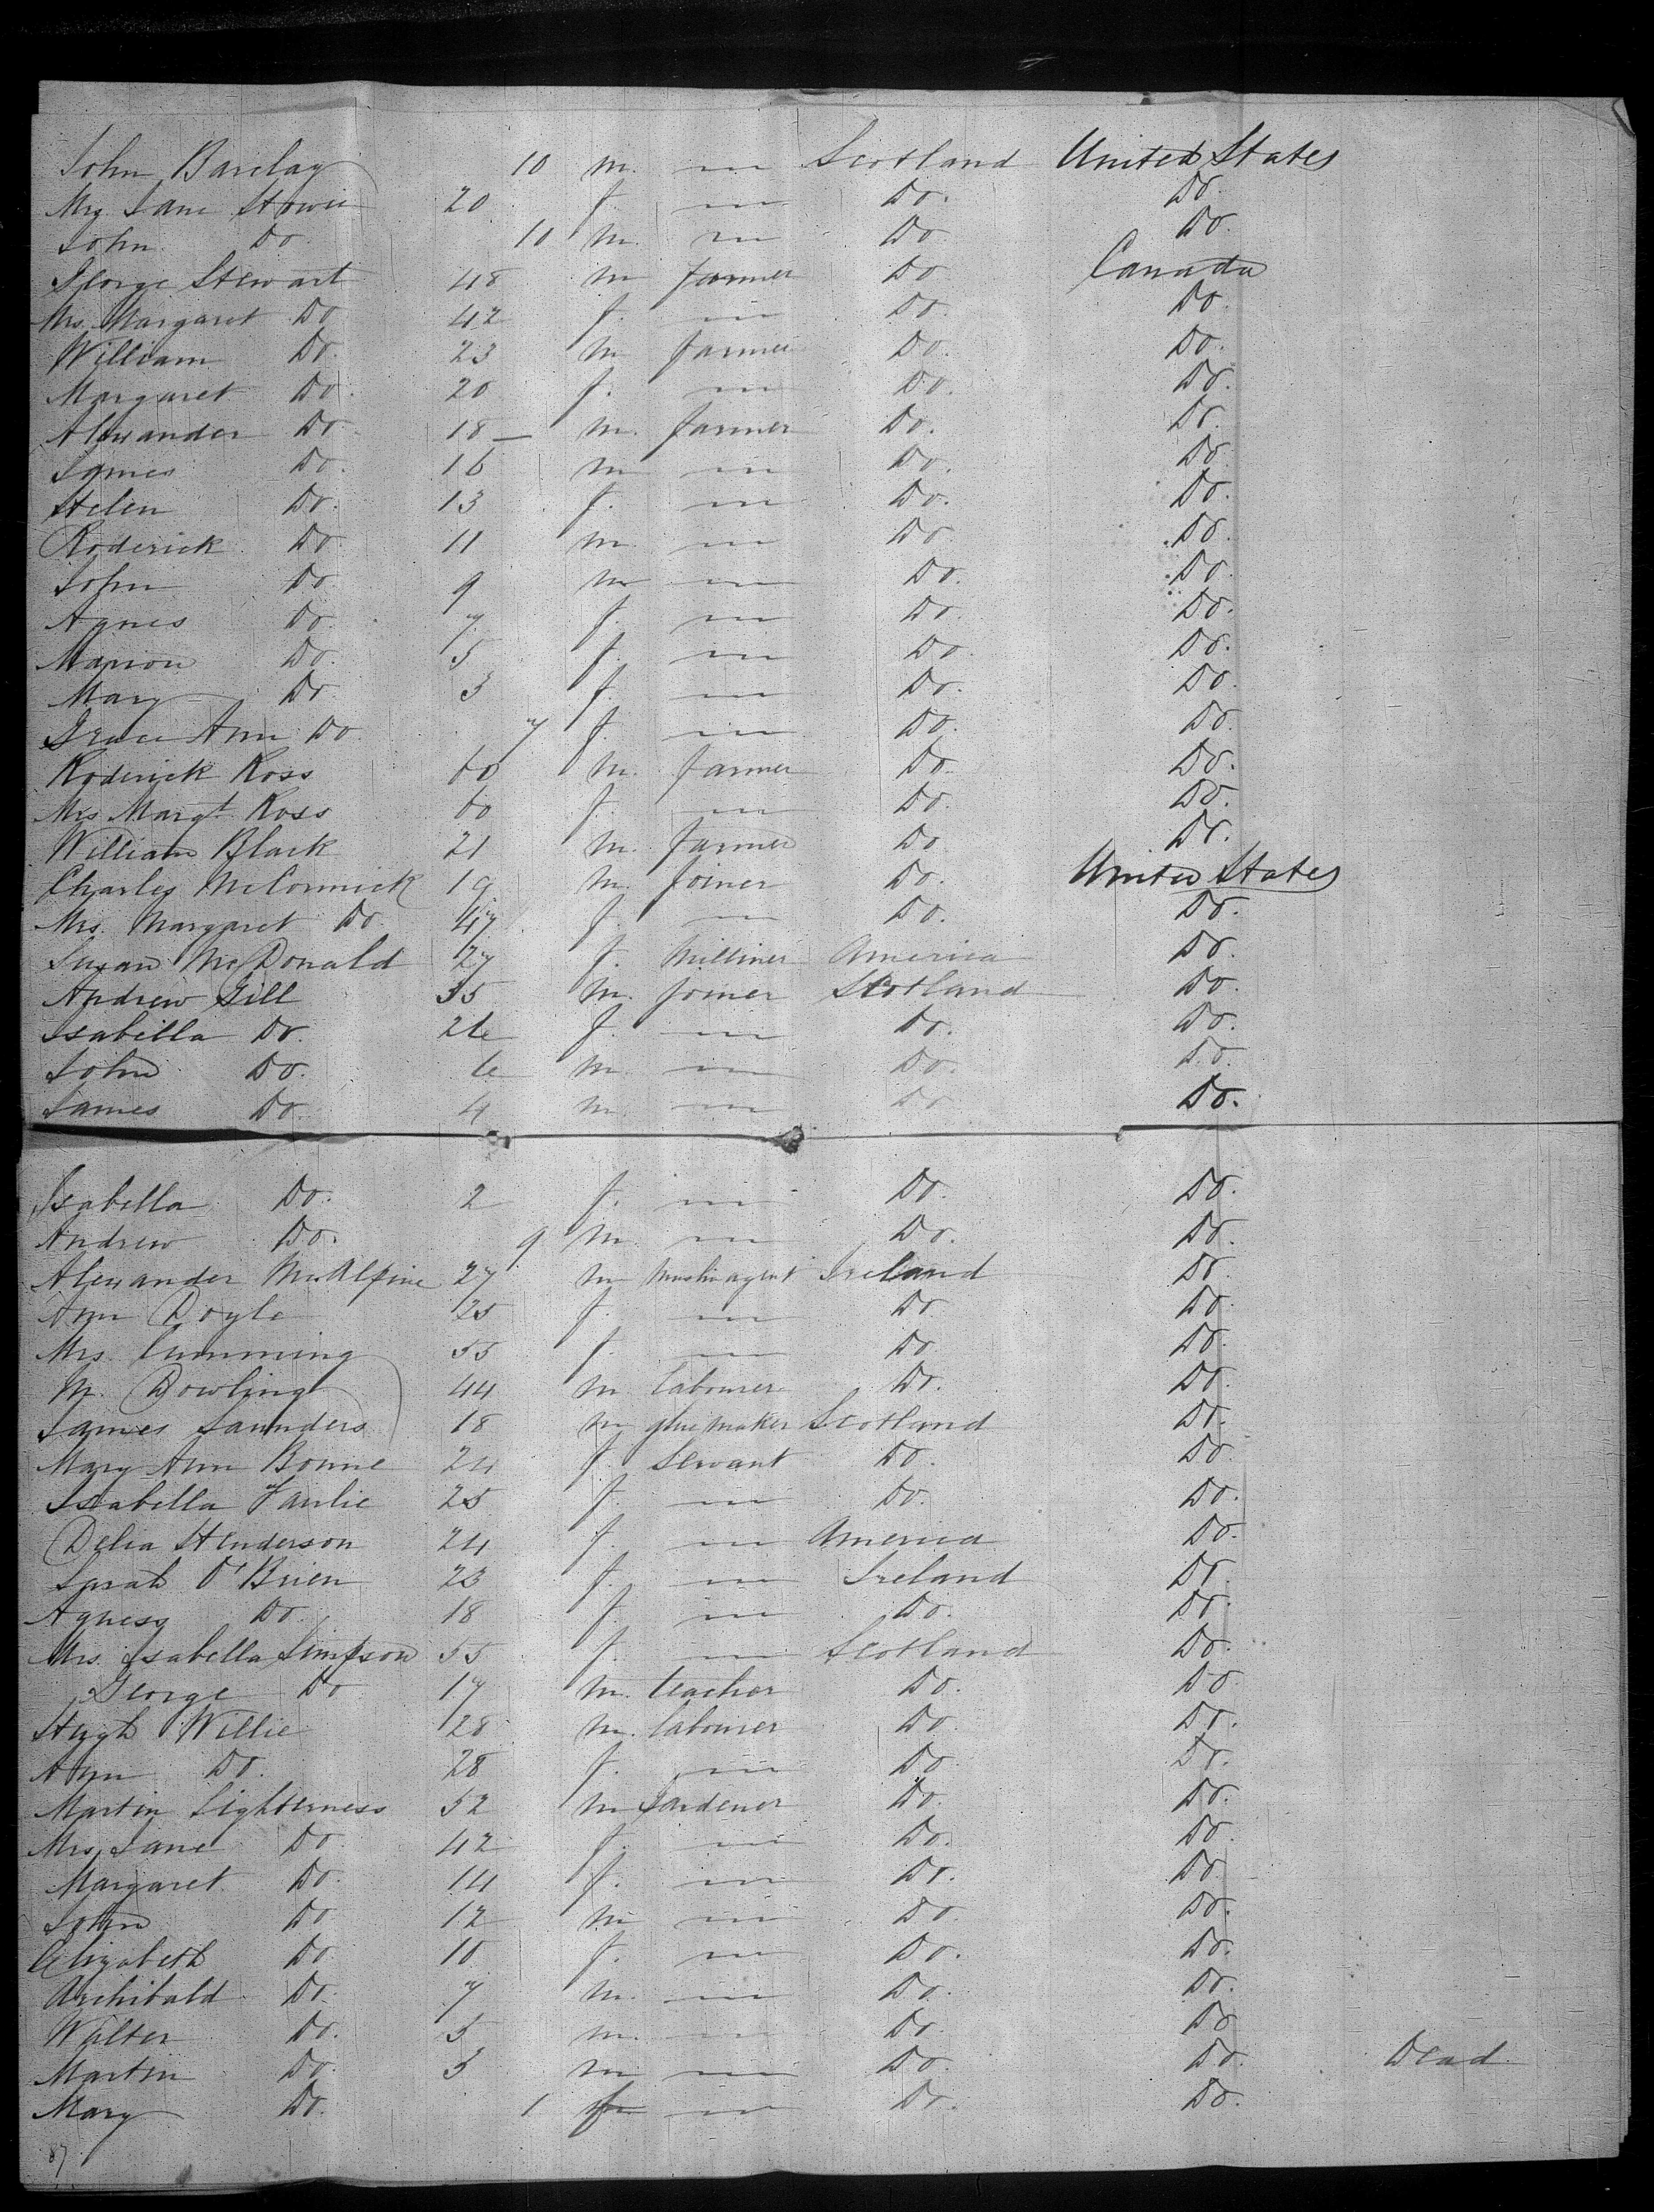 John Barclay 10 m. — Scotland United States
Mrs Jane Howie 20 f. — Do. Do.
John Do. 10 m. — Do Do.
George Stewart 48 m farmer Do Canada
Mrs. Margaret Do 42 f. — Do. Do.
William Do. 23 m farmer Do. Do.
Margaret Do. 20 f. — Do. Do.
Alexander Do. 18 — m. farmer Do. Do.
James Do. 16 m — Do. Do.
Helen Do. 13 f. — Do. Do.
Roderick Do. 11 m. — Do. Do.
John Do. 9 m — Do. Do.
Agnes Do. 7 f. — Do. Do.
Marion Do. 5 f. — Do. Do.
Mary Do. 3 f. — Do. Do.
Grace Ann Do. 7 f. — Do. Do.
Roderick Ross 60 m. farmer Do. Do.
Mrs Margt Ross 60 f. — Do. Do.
William Black 21 m. farmer Do. Do.
Charles McCormick 19 m. Joiner Do. United States
Mrs. Margaret Do. 47 f. — Do. Do.
Susan McDonald 27 f. Milliner America Do.
Andrew Gill 35 m. joiner Scotland Do.
Isabella Do. 26 f. — Do. Do.
John Do. 6 m. — Do. Do.
James Do. 4 m. — Do Do.
Isabella Do. 2 f. — Do. Do.
Andrew Do. 9 m. — Do. Do.
Alexander McAlpine 27 m Muslin agent Ireland Do.
Ann Doyle 25 f. — Do. Do.
Mrs. Cumming 55 f. — Do. Do.
M. Dowling 44 m labourer Do. Do.
James Saunders 18 m glue maker Scotland Do.
Mary Ann Bonnie 24 f. Servant Do. Do.
Isabella Faulie 25 f. — Do. Do.
Delia Henderson 24 f. — America Do.
Sarah O'Brien 23 f. — Ireland Do.
Agness Do. 18 f. — Do. Do.
Mrs. Isabella Simpson 55 f. — Scotland Do.
George Do 17 m. teacher Do. Do
Hugh Willie 28 m. labourer Do. Do.
Ann Do. 28 f. — Do Do.
Martin Lighterness 52 m Gardener Do. Do.
Mrs Jane Do. 42 f. — Do. Do.
Margaret Do. 14 f. — Do. Do.
John Do 12 m — Do. Do.
Elizabeth Do. 10 f. — Do. Do.
Archibald Do. 7 m. — Do. Do.
Walter Do. 5 m. — Do. Do
Martin Do. 3 m — Do. Do. Dead.
Mary Do. 1 f — Do. Do.
87